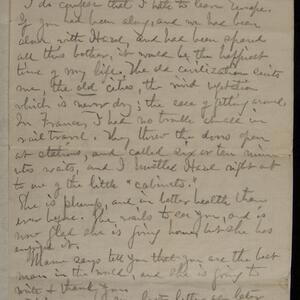 I do confess that I hate to leave Europe.
If you had been along, and we had been
alone with Hazel and had been spared
all this bother, it would be the happiest
time of my life. The old civilization suits
me, the old cities, the mild
which is never dry; the ease of getting around.
In France, I had no trouble
rail travel. They threw the doors open
at stations, and called six or ten minu
utes waits, and I hustled Hazel right out
to one of the little "cabinets."
She is plump, and in better health than
ever before. She wants to see you, and is
now glad she is going home, but she has
enjoyed it.
Mama says tell you that you are the best
man in the world, and she is going to
write & thank you
letter